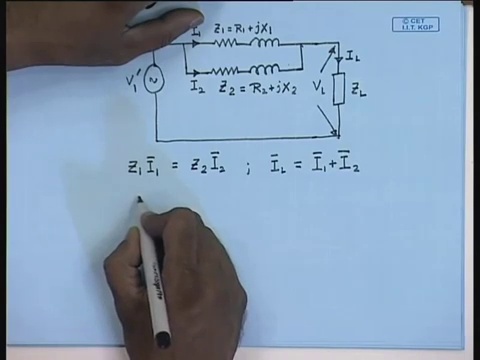 © CET
I.I.T. KGP
I₁ Z₁ = R₁ + jX₁
I_L
V₁' ~ I₂ Z₂ = R₂ + jX₂ V_L Z_L
Z₁ Ī₁ = Z₂ Ī₂ ; Ī_L = Ī₁ + Ī₂